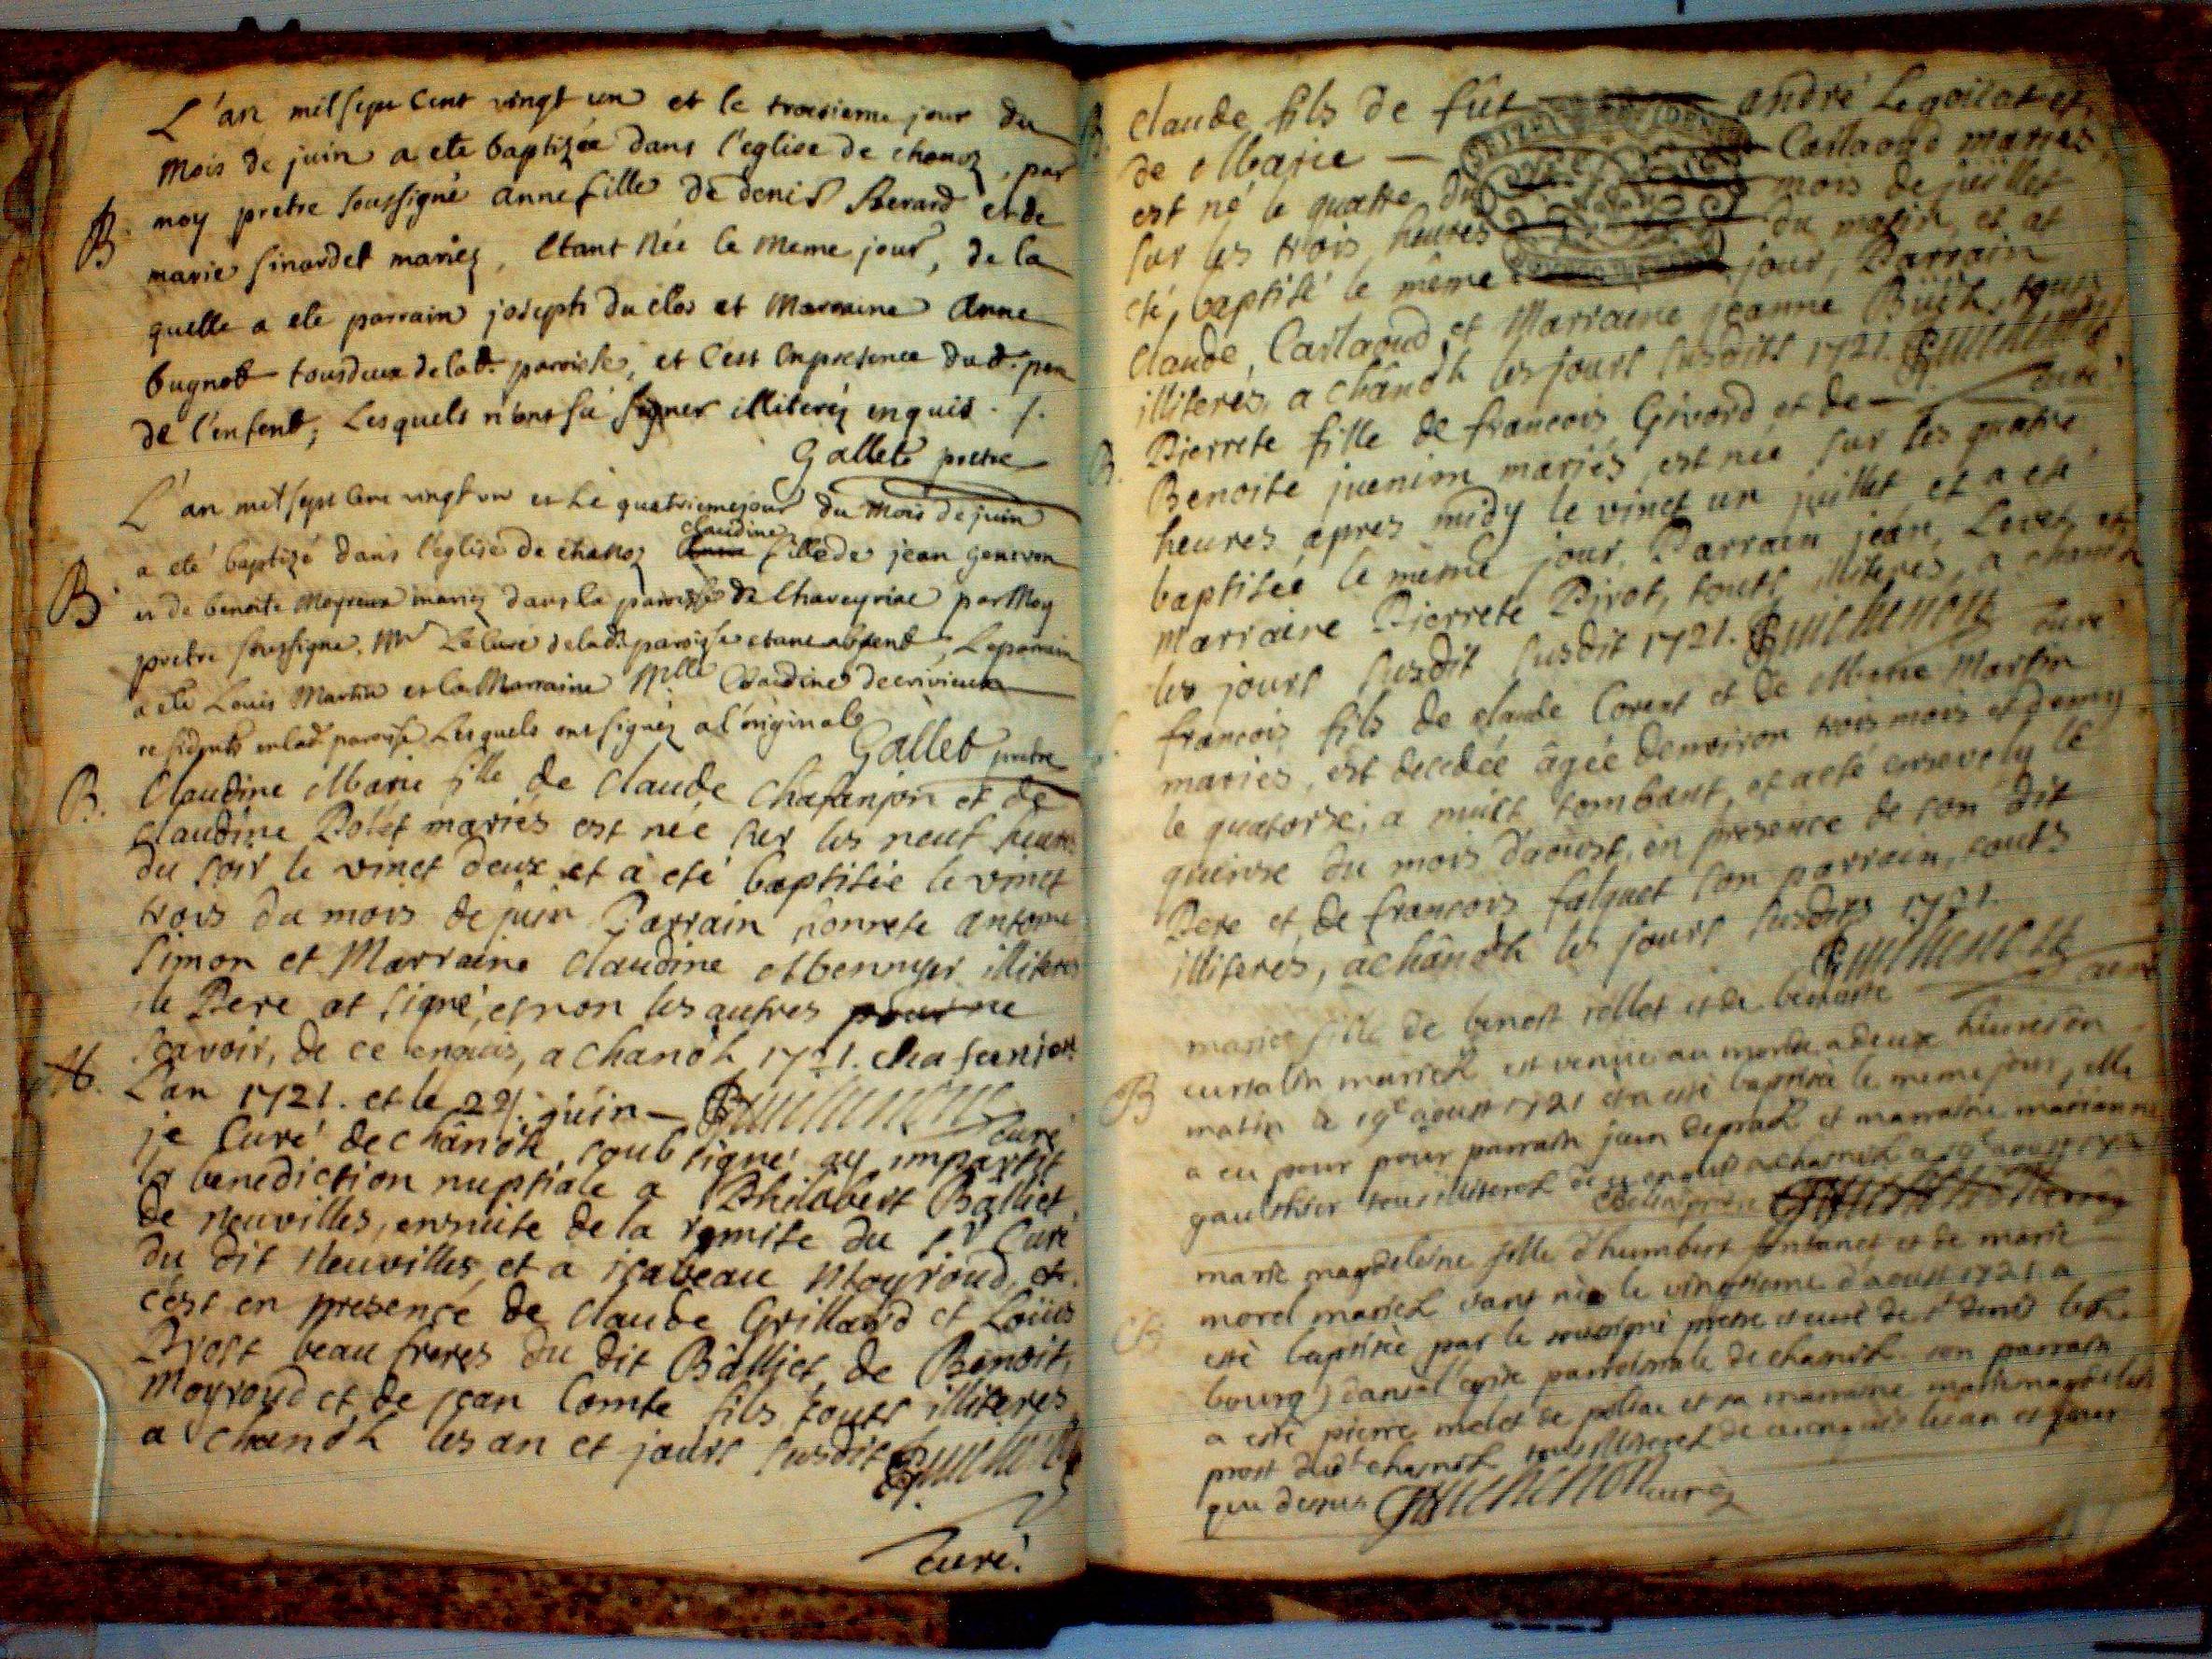 L'an mil sept Cent vingt un et le troisieme jour du
Mois de juin a ete baptizée dans l'eglise de chanoz, par
B. moy pretre soussigné anne fille de denis Berard et de
marie sinardet mariez, etant Née le meme jour, de la
quelle a ete parrain joseph du clos et Marraine Anne
bugnot tous deux de lad. paroisse, et c'est en presence dud. pere
de l'enfent, Lesquels n'ont su signer illiterez enquis ./.
Gallet pretre
L'an mil sept Cent vingt un et le quatrieme jour du Mois de juin
claudine
a eté baptizé dans l'eglise de chanoz fille de jean genevon
B. et de benoite Moyroux mariez dans la paroisse de Chaveyriac par Moy
pretre soussigné, Mr Le Curé de lad. paroisse etant absent, Le parrain
a ete Louis Martin et la Marraine Mlle Claudine decrivieux
residents en lad. paroisse Lesquels ont signez a l'original
Gallet pretre
B. Claudine Marie fille de Claude Chafanjon et de
Claudine Polet mariés est née sur les neuf heures
du soir le vinct deux et a eté baptisée le vinct
trois du mois de juin Parrain honnete antoine
Simon et Marraine Claudine illiteres
le Pere at signé, et non les autres pour ne
scavoir, de ce enquis, a chanoz 1721. Chafanion
M. L'an 1721. et le 29. juin
curé
je Curé de chânoz soubsigné ay impartit
la benediction nuptiale a Philibert Balliet
de Neuvilles, ensuite de la remise du sr Curé
du dit Neuvilles, et a isabeau Moyroud, et
c'est en presence de Claude Grillard et Loüis
Prost beaufreres du dit Balliet, de Benoit
Moyroud et de jean Comte fils, touts illiteres
a chanoz les an et jours susdit
curé.
B. Claude fils de fût andré Legoilat et
de Marie Carlaoud mariés
est né le quattre du mois de juillet
sur les trois heures du matin, et at
eté baptisé le même jour, Parrain
Claude Carlaoud et Marraine jeanne touts
illiteres, a chânoz les jours susdits 1721.
curé
B. Pierrete fille de francois Givord et de
Benoite juenim mariés, est née sur les quatre
heures apres midy le vinct un juillet et a eté
baptisée le même jour, Parrain jean Levet et
Marraine Pierrete Pivot, touts illiteres, a chanoz
les jours susdit susdit 1721. curé
francois fils de claude Corent et de Marie Martin
mariés, est decedée âgée denviron trois mois et demy
le quatorze, a nuict tombant, et a eté ensevely le
quinze du mois d'aoust, en presence de son dit
Pere et de francois falquet son parrain, touts
illiteres, a chânoz les jours susdits 1721.
curé
marie fille de benoit rollet et de benoite
curtalin mariez est venüe au monde a deux heures du
B matin le 19e aoust 1721 et a esté baptisée le meme jour, elle
a eu pour pour parrain jean et marraine marianne
gaulthier tous illiterez de ce enquis a chanoz ce 19e aoust
marie magdeleine fille d'humbert fontanet et de marie
morel mariez etant née le vingtieme d'aoust 1721 a
B esté baptisée par le soussigné pretre et curé de st denis
bourg) dans l'eglise parroissiale de chanoz son parrain
a esté pierre et sa marraine
prost dudt chanoz tous illiterez de ce enquis les an et jour
que dessus curé